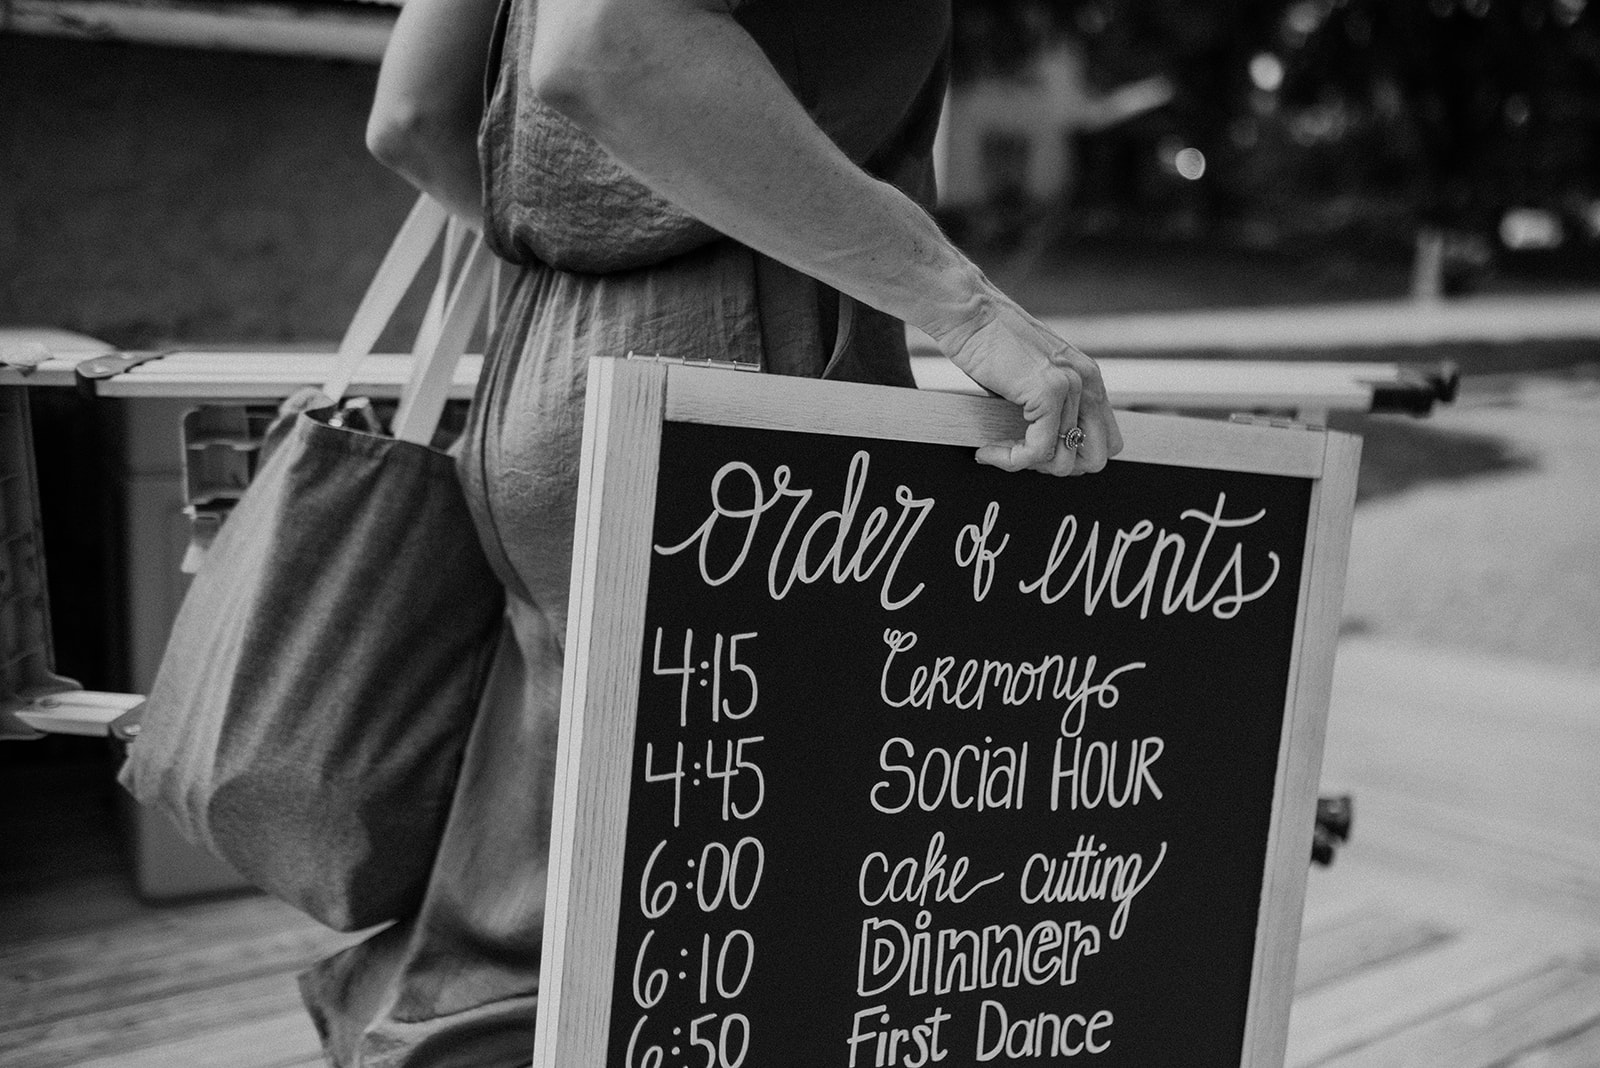 order of events
4:15 Ceremony
4:45 Social HOUR
6:00 cake cutting
6:10 Dinner
6:50 First Dance